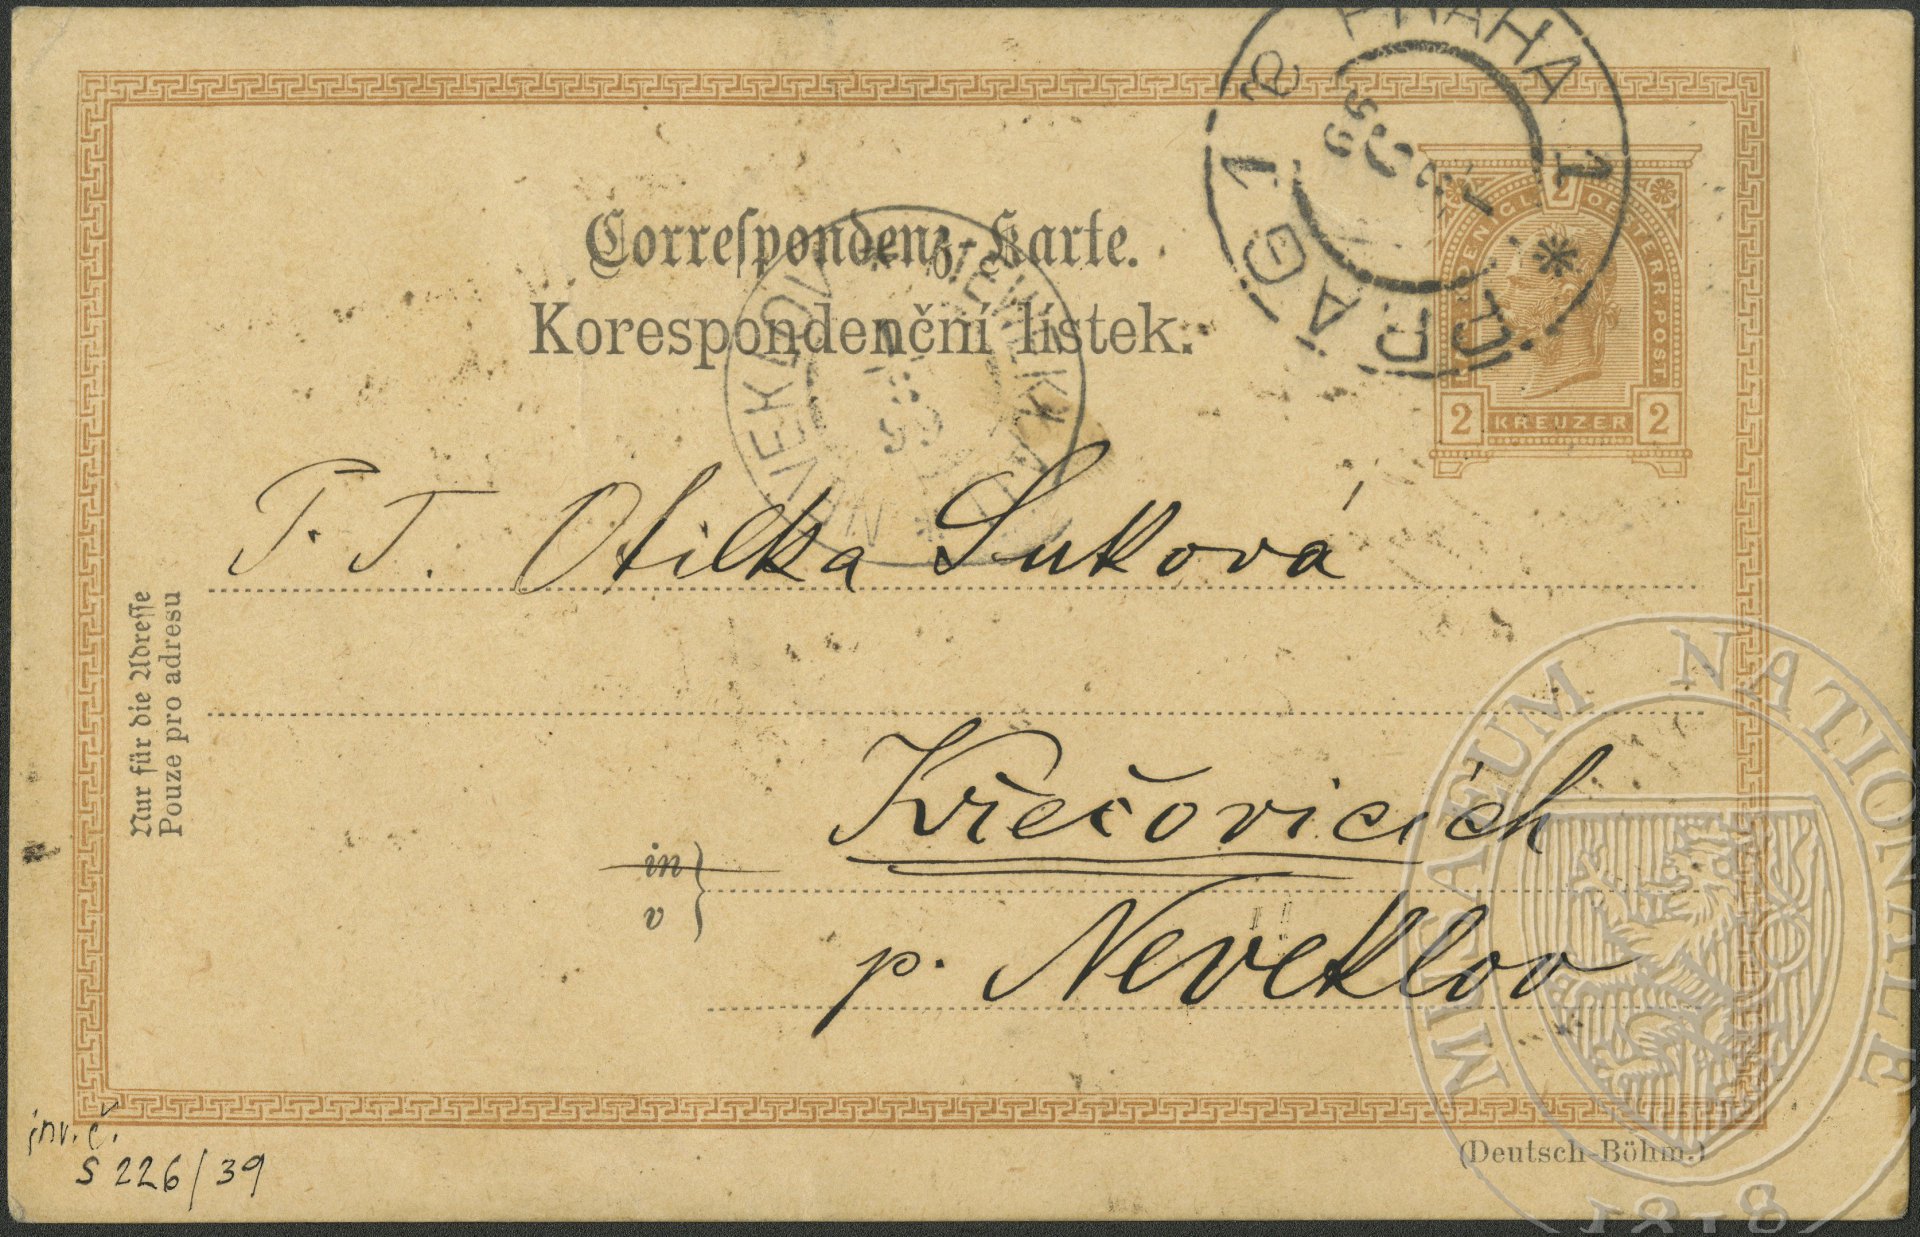 Correspondenz-Karte.
Korespondenční lístek.
PRAG 1 PRAHA 1
KAIS. KÖNIGL. OESTERR. POST.
2
2 KREUZER 2
NEVEKLOV
P. T. Otilka Suková
Nur für die Adresse
Pouze pro adresu
Křečovicích
in
v
p. Neveklov
(Deutsch-Böhm.)
inv. č.
S 226/39
MUSAEUM NATIONALE
1818